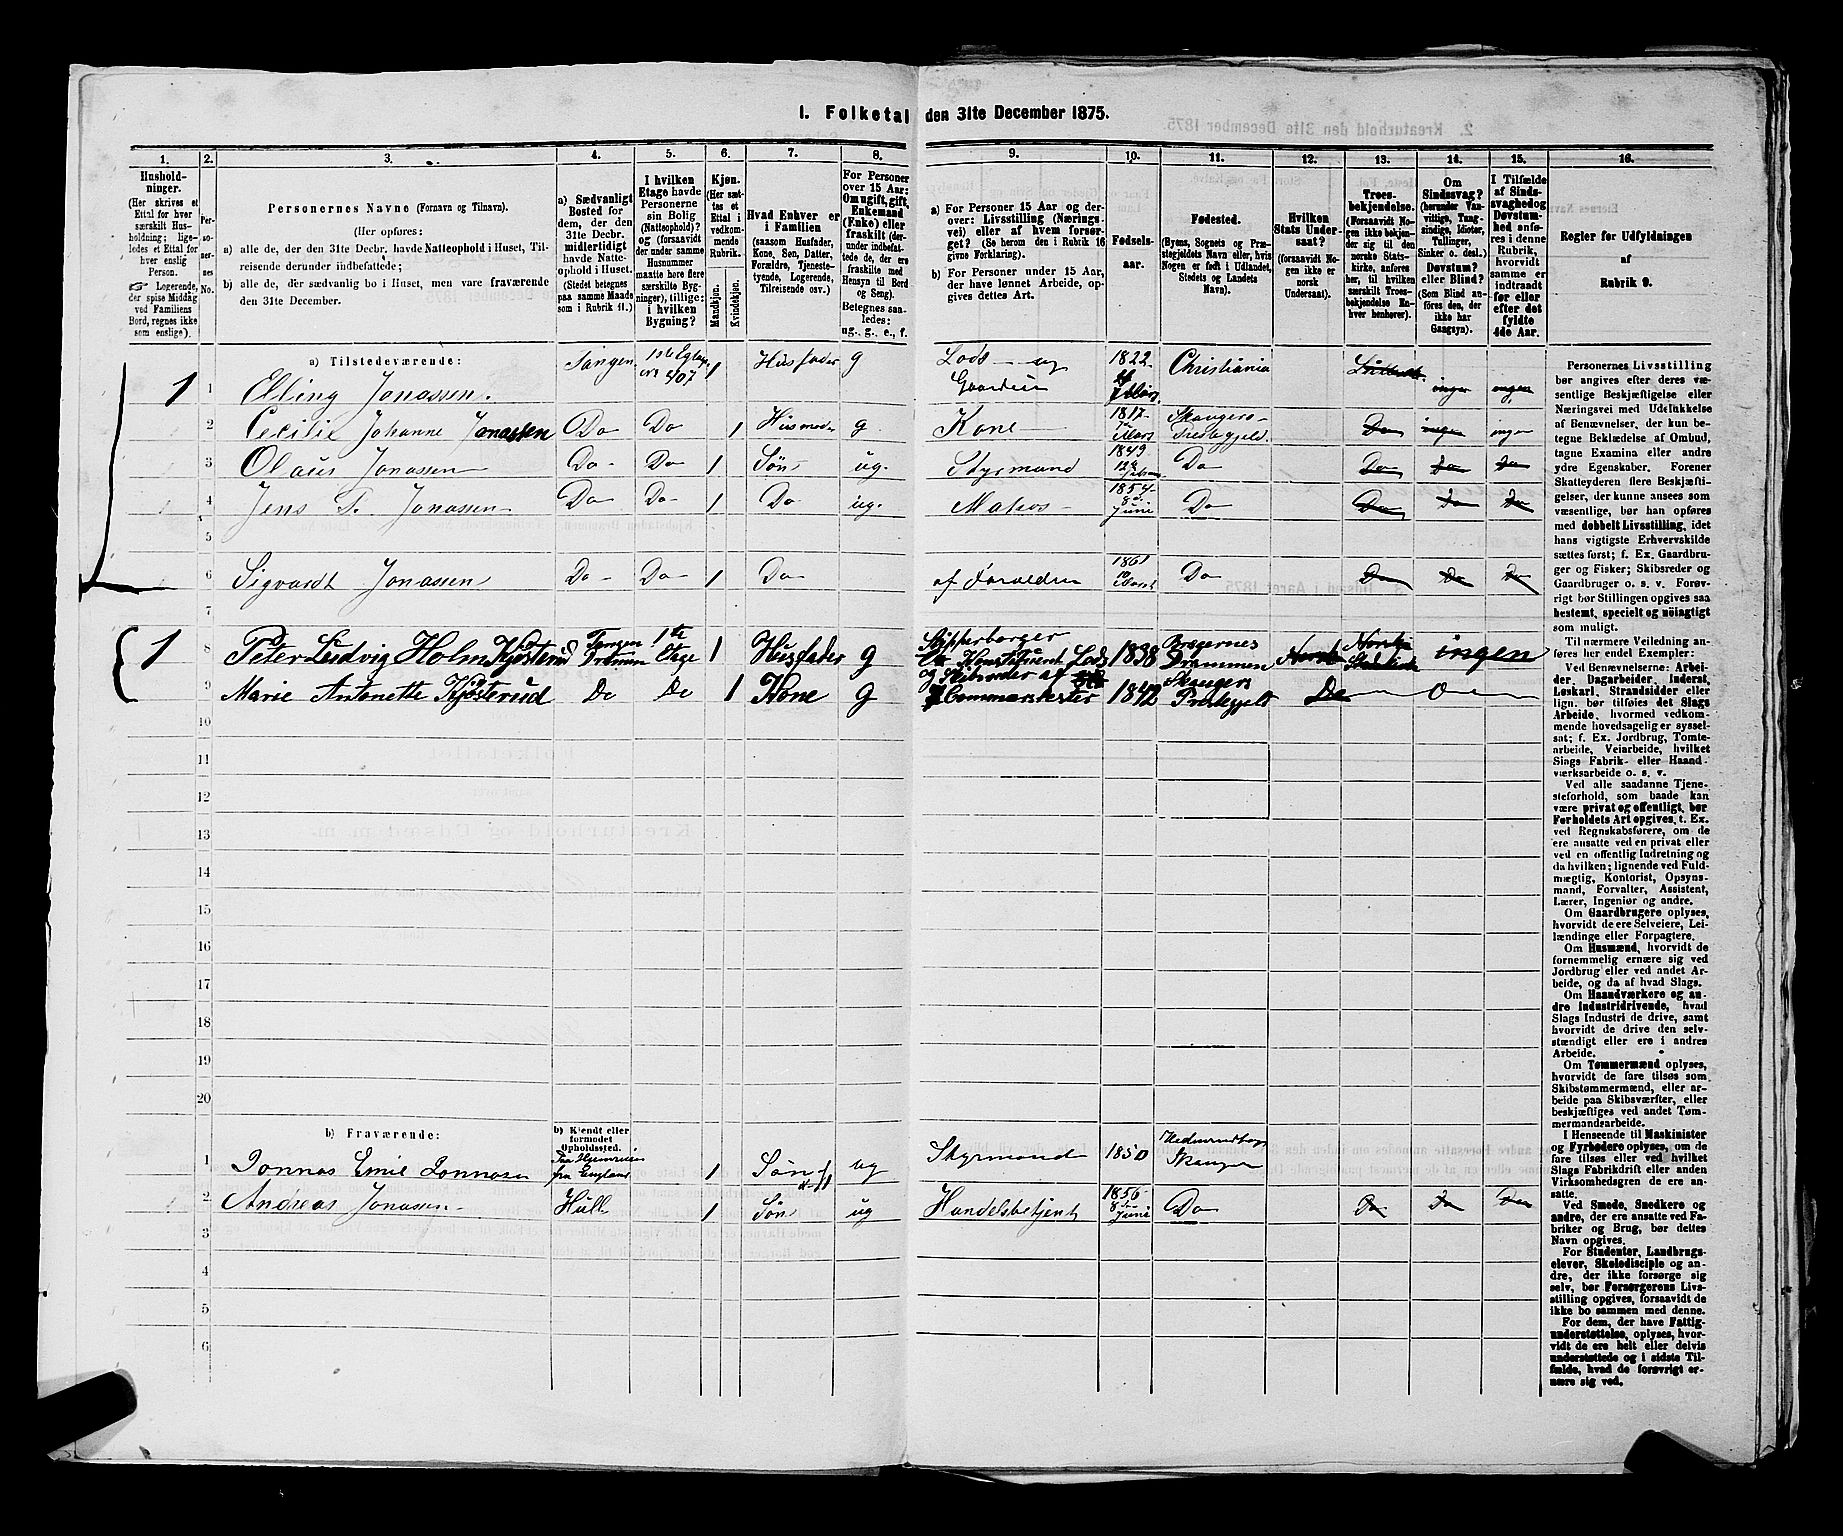 1. Folketal den 31te December 1875.
1. 2. 3. 4. 5. 6. 7. 8. 9. 10. 11. 12. 13. 14. 15. 16.
Husholdninger.
(Her skrives et
Ettal for hver
særskilt Husholdning; ligeledes
et Ettal for
hver enslig
Person.
☞ Logerende,
der spise Middag
ved Familiens
Bord, regnes ikke
som enslige).
Personernes No.
Personernes Navne (Fornavn og Tilnavn).
(Her opføres:
a) alle de, der den 31te Decbr. havde Natteophold i Huset, Tilreisende
derunder indbefattede;
b) alle de, der sædvanlig bo i Huset, men vare fraværende
den 31te December.
a) Sædvanligt
Bosted for
dem, der den
31te Decbr.
midlertidigt
havde Natteophold
i Huset.
(Stedet betegnes
paa samme Maade
som i Rubrik 11.)
I hvilken
Etage havde
Personerne
sin Bolig
(Natteophold)?
og (forsaavidt
der under samme
Husnummer
maatte høre flere
særskilte Bygninger),
tillige:
i hvilken
Bygning?
Kjøn.
(Her sættes
et
Ettal i
vedkommende
Rubrik.
Mandkjøn.
Kvindekjøn.
Hvad Enhver er
i Familien
(saasom Husfader,
Kone, Søn, Datter,
Forældre, Tjenestetyende,
Logerende,
Tilreisende osv.)
For Personer
over 15 Aar:
Om ugift, gift,
Enkemand
(Enke) eller
fraskilt (derunder
indbefattede
de, der ere
fraskilte med
Hensyn til Bord
og Seng).
Betegnes saaledes:
ug., g., e., f.
a) For Personer 15 Aar og derover:
Livsstilling (Næringsvei)
eller af hvem forsørget?
(Se herom den i Rubrik 16
givne Forklaring).
b) For Personer under 15 Aar,
der have lønnet Arbeide, opgives
dettes Art.
Fødselsaar.
Fødested.
(Byens, Sognets og Præstegjeldets
Navn eller, hvis
Nogen er født i Udlandet,
Stedets og Landets
Navn).
Hvilken
Stats Undersaat?
(forsaavidt Nogen
ikke er
norsk
Undersaat).
Troesbekjendelse.
(Forsaavidt Nogen
ikke bekjender
sig til den
norske Statskirke,
anføres
her, til hvilken
særskilt Troesbekjendelse
Enhver
henhører).
Om
Sindssvag?
(herunder Vanvittige,
Tungsindige,
Idioter,
Tullinger,
Sinker o. desl.)
Døvstum?
eller Blind?
(Som Blind anføres
den, der
ikke har
Gangsyn).
I Tilfælde
af Sindssvaghed
og
Døvstumhed
anføres
i denne
Rubrik,
hvorvidt
samme er
indtraadt
før eller
efter det
fyldte
4de Aar.
Regler for Udfyldningen
af
Rubrik 9.
a) Tilstedeværende:
1 1 Elling Jonassen. Tangen 1ste Etage 1 Husfader g Lods og Gaardeier 1822 Mars Christiania ingen ingen
2 Cecilie Johanne Jonassen Do Do 1 Husmoder g. Kone 1817 Mars Skaugers Prestegjeld. Do ingen ingen
3 Olaus Jonassen Do Do 1 Søn ug. Styrmand 1849 Do Do Do Do
4 Jens P. Jonassen Do Do 1 Do ug. Matros 1854 8de Juni Do Do Do Do
5
6 Sigvardt Jonassen Do Do 1 Do af Forældre 1861 Marts Do Do Do Do
7
1 8 Peter Ludvig Holm Kjøsterud Tangen Drammen 1ste Etage 1 Husfader g Skipperborger Konstitueret Lods 1838 Bragernes Drammen Norsk Norske Statskirke ingen
9 Marie Antonette Kjøsterud Do Do 1 Kone g 1842 Skaugers Prestegjeld Do
10
11
12
13
14
15
16
17
18
19
20
b) Fraværende:
b) Kjendt eller
formodet
Opholdssted.
1 Jonnas Emil Jonnasen Paa Hjemreisen fra England 1 Søn ug Styrmand 1850 Skauger
2 Andreas Jonassen Hull 1 Søn ug Handelsbetjent 1856 8de Juni Do Do Do Do
3
4
5
6
Personernes Livsstilling
bør angives efter deres væsentlige
Beskjæftigelse eller
Næringsvei med Udelukkelse
af Benævnelser, der kun betegne
Beklædelse af Ombud,
tagne Examina eller andre
ydre Egenskaber. Forener
Skatteyderen flere Beskjæftigelser,
der kunne ansees som
væsentlige, bør han opføres
med dobbelt Livsstilling, idet
hans vigtigste Erhvervskilde
sættes først; f. Ex. Gaardbruger
og Fisker; Skibsreder og
Gaardbruger o. s. v. Forøvrigt
bør Stillingen opgives saa
bestemt, specielt og nöiagtigt
som muligt.
Til nærmere Veiledning anføres
her endel Exempler:
Ved Benævnelserne: Arbeider,
Dagarbeider, Inderst,
Løskarl, Strandsidder eller
lign. bør tilføies det Slags
Arbeide, hvormed vedkommende
hovedsagelig er sysselsat;
f. Ex. Jordbrug, Tomtearbeide,
Veiarbeide, hvilket
Slags Fabrik- eller Haandværksarbeide
o. s. v.
Ved alle saadanne Tjenesteforhold,
som baade kan
være privat og offentligt, bør
Forholdets Art opgives, t. Ex.
ved Regnskabsførere, om de
ere ansatte ved en privat eller
ved en offentlig Indretning og
da hvilken; lignende ved Fuldmægtig,
Kontorist, Opsynsmand,
Forvalter, Assistent,
Lærer, Ingeniør og andre.
Om Gaardbrugere oplyses,
hvorvidt de ere Selveiere, Leilændinge
eller Forpagtere.
Om Husmænd, hvorvidt de
fornemmelig ernære sig ved
Jordbrug eller ved andet Arbeide,
og da af hvad Slags.
Om Haandværkere og andre
industridrivende, hvad
Slags Industri de drive, samt
hvorvidt de drive den selvstændigt
eller ere i andres
Arbeide.
Om Tømmermænd oplyses,
hvorvidt de fare tilsøs som
Skibstømmermænd, eller arbeide
paa Skibsværfter, eller
beskjæftiges ved andet Tømmermandsarbeide.
I Henseende til Maskinister
og Fyrbødere oplyses, om de
fare tilsøs eller ved hvilket
Slags Fabrikdrift eller anden
Virksomhedsgren de ere ansatte.
Ved Smede, Snedkere og
andre, der ere ansatte ved Fabriker
og Brug, bør dettes
Navn opgives.
For Studenter, Landbrugselever,
Skoledisciple og andre,
der ikke forsørge sig
selv, bør Forsørgerens Livsstilling
opgives, forsaavidt de
ikke bo sammen med denne.
For dem, der have Fattigunderstøttelse,
oplyses, hvorvidt
de ere helt eller delvis
understøttede og i sidste Tilfælde,
hvad de forøvrigt ernære
sig ved.